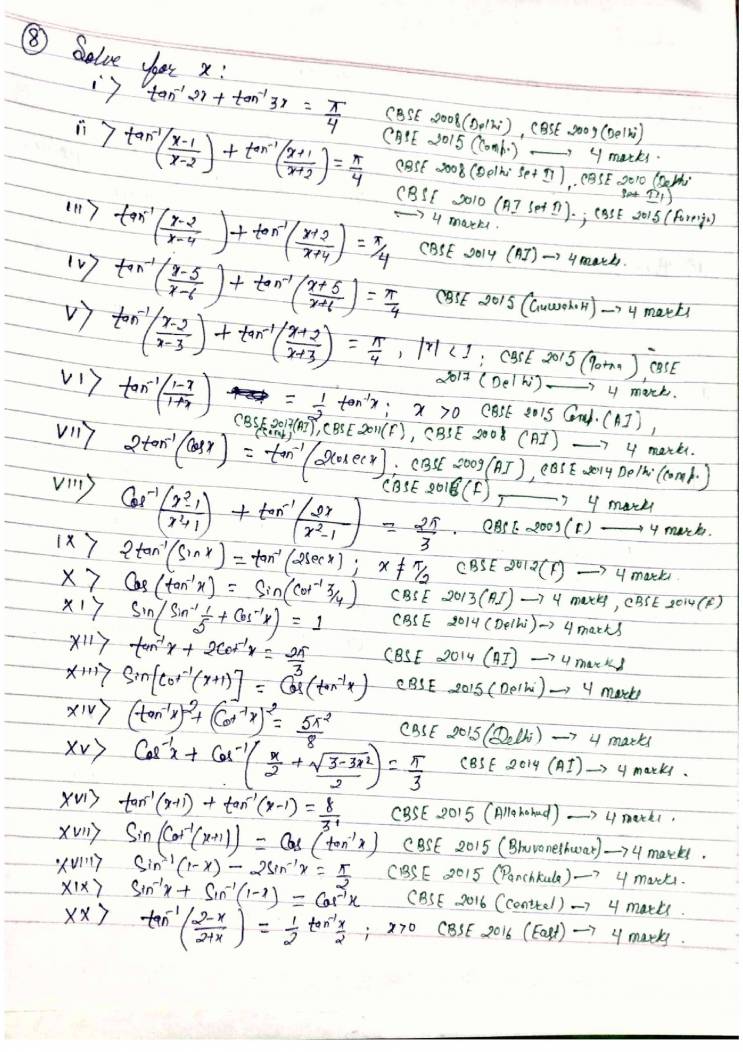 ⑧ Solve for x:
i> tan⁻¹ 2x + tan⁻¹ 3x = π/4 CBSE 2008 (Delhi), CBSE 2009 (Delhi)
CBSE 2015 (Comp.) → 4 marks.
ii> tan⁻¹((x-1)/(x-2)) + tan⁻¹((x+1)/(x+2)) = π/4 CBSE 2008 (Delhi Set II), CBSE 2010 (Delhi Set III)
CBSE 2010 (AI Set II).; CBSE 2015 (Foreign)
→ 4 marks.
iii> tan⁻¹((x-2)/(x-4)) + tan⁻¹((x+2)/(x+4)) = π/4 CBSE 2014 (AI) → 4 marks.
iv> tan⁻¹((x-5)/(x-6)) + tan⁻¹((x+5)/(x+6)) = π/4 CBSE 2015 (Guwahati) → 4 marks
v> tan⁻¹((x-2)/(x-3)) + tan⁻¹((x+2)/(x+3)) = π/4, |x| < 1; CBSE 2015 (Patna), CBSE
2017 (Delhi) → 4 marks.
vi> tan⁻¹((1-x)/(1+x)) = 1/2 tan⁻¹x; x > 0 CBSE 2015 Comp. (AI),
CBSE 2017 (AI) (Comp), CBSE 2011 (F), CBSE 2008 (AI) → 4 marks.
vii> 2tan⁻¹(Cosx) = tan⁻¹(2cosecx). CBSE 2009 (AI), CBSE 2014 Delhi (comp.)
CBSE 2016 (F), → 4 marks
viii> Cos⁻¹((x²-1)/(x²+1)) + tan⁻¹(2x/(x²-1)) = 2π/3. CBSE 2009 (F) → 4 marks.
ix> 2tan⁻¹(Sinx) = tan⁻¹(2secx); x ≠ π/2 CBSE 2012 (F) → 4 marks.
x> Cos(tan⁻¹x) = Sin(Cot⁻¹ 3/4) CBSE 2013 (AI) → 4 marks, CBSE 2014 (F)
xi> Sin(Sin⁻¹ 1/5 + Cos⁻¹x) = 1 CBSE 2014 (Delhi) → 4 marks
xii> tan⁻¹x + 2Cot⁻¹x = 2π/3 CBSE 2014 (AI) → 4 marks
xiii> Sin[Cot⁻¹(x+1)] = Cos(tan⁻¹x) CBSE 2015 (Delhi) → 4 marks
xiv> (tan⁻¹x)² + (Cot⁻¹x)² = 5π²/8 CBSE 2015 (Delhi) → 4 marks
xv> Cos⁻¹x + Cos⁻¹(x/2 + √(3-3x²)/2) = π/3 CBSE 2014 (AI) → 4 marks.
xvi> tan⁻¹(x+1) + tan⁻¹(x-1) = 8/31 CBSE 2015 (Allahabad) → 4 marks.
xvii> Sin(Cot⁻¹(x+1)) = Cos(tan⁻¹x) CBSE 2015 (Bhuvaneshwar) → 4 marks.
xviii> Sin⁻¹(1-x) - 2Sin⁻¹x = π/2 CBSE 2015 (Panchkula) → 4 marks.
xix> Sin⁻¹x + Sin⁻¹(1-x) = Cos⁻¹x CBSE 2016 (Central) → 4 marks.
xx> tan⁻¹((2-x)/(2+x)) = 1/2 tan⁻¹ x/2; x>0 CBSE 2016 (East) → 4 marks.